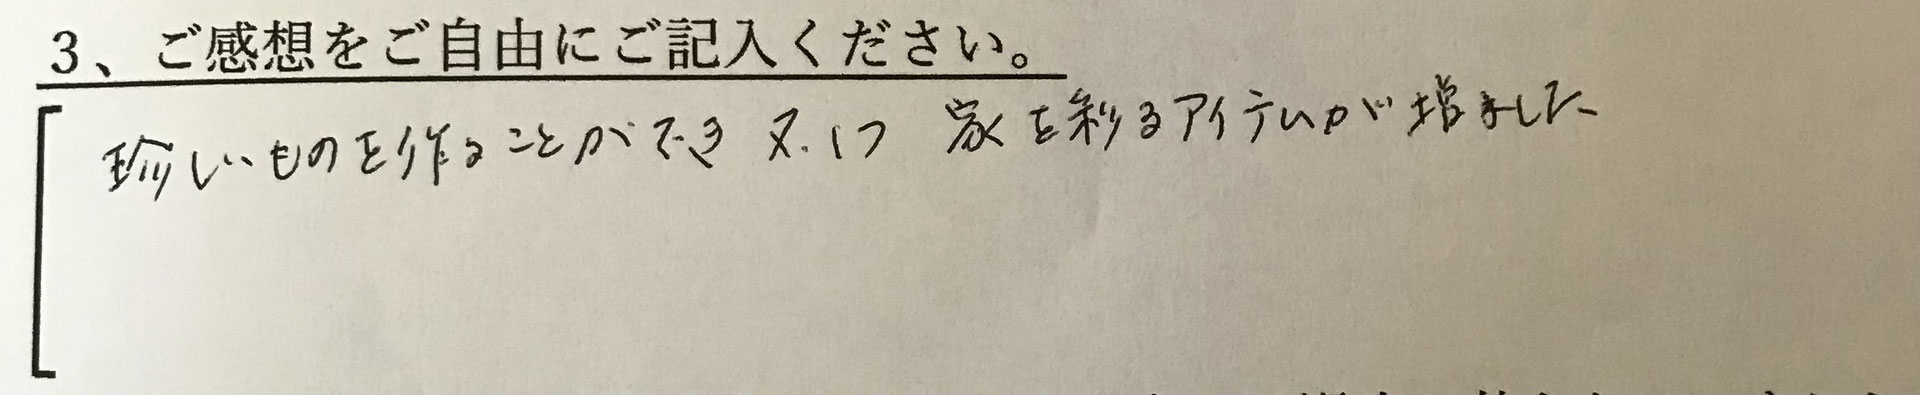 3、ご感想をご自由にご記入ください。
珍しいものを作ることができ 又1つ 家を彩るアイテムが増ました